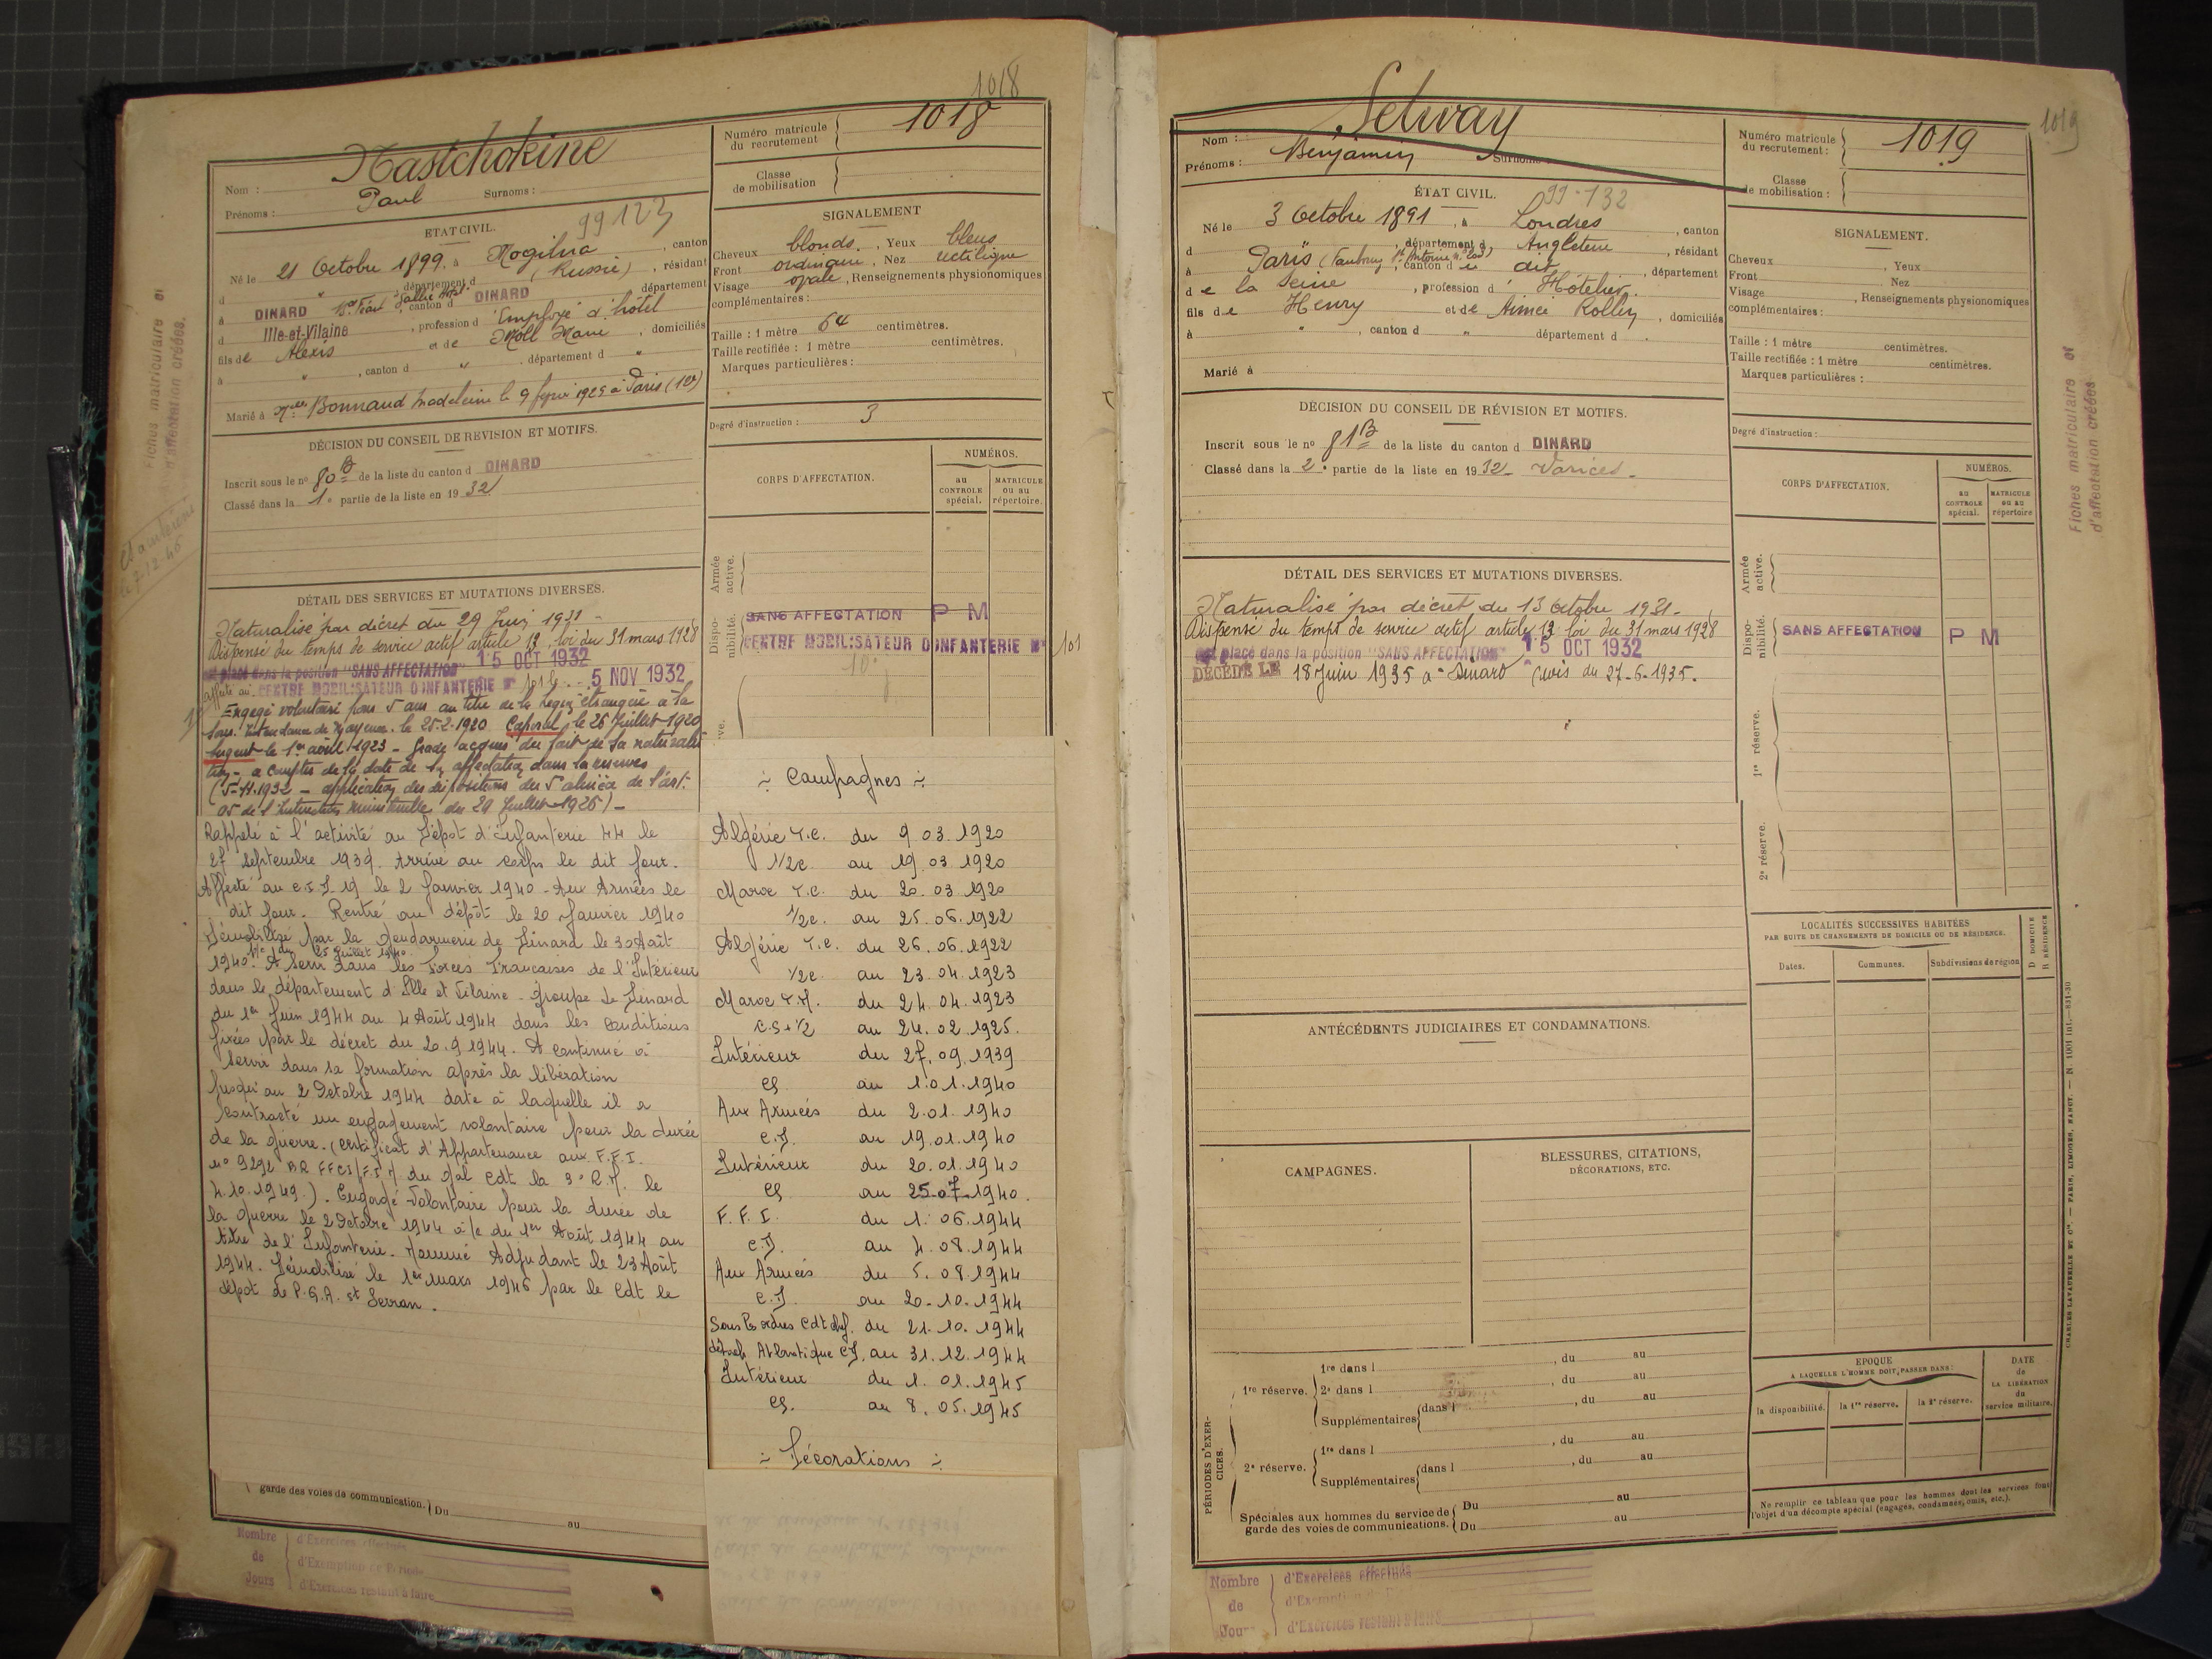 1018
Nom : Nastchokine
Prénoms : Paul Surnoms :
Numéro matricule du recrutement 1018
Classe de mobilisation
ETAT CIVIL.
99 123
Né le 21 Octobre 1899, à Mogilna , canton
d " , département d (Russie) , résidant
à DINARD Gallic Hotel , canton d DINARD département
d Ille-et-Vilaine , profession d Employé d'hôtel
fils de Alexis et de Moll Marie , domiciliés
à " , canton d " , département d "
Marié à Melle Bonnaud Madeleine le 9 1925 à Paris (1er)
SIGNALEMENT
Cheveux blonds , Yeux bleus
Front ordinaire , Nez rectiligne
Visage ovale , Renseignements physionomiques
complémentaires :
Taille : 1 mètre 64 centimètres.
Taille rectifiée : 1 mètre centimètres.
Marques particulières :
Degré d'instruction : 3
DÉCISION DU CONSEIL DE REVISION ET MOTIFS.
Inscrit sous le no 80 B de la liste du canton d DINARD
Classé dans la 1e partie de la liste en 1932
CORPS D'AFFECTATION.
NUMÉROS.
au CONTROLE spécial.
MATRICULE ou au répertoire.
Armée active.
Disponibilité.
SANS AFFECTATION P M
CENTRE MOBILISATEUR D'INFANTERIE No 101
DÉTAIL DES SERVICES ET MUTATIONS DIVERSES.
Naturalisé par décret du 29 Juin 1931 -
Dispensé du temps de service actif article 13, loi du 31 mars 1928
Est placé dans la position "SANS AFFECTATION" 15 OCT 1932
Affecté au CENTRE MOBILISATEUR D'INFANTERIE No 101 le 5 NOV 1932
Engagé volontaire pour 5 ans au titre de la Légion étrangère à la
Sous Intendance de Mayence. le 25-2-1920 Caporal le 26 Juillet 1920
Sergent le 1er avril 1923 - Grade acquis du fait de sa naturalisa
tion - à compter de la date de son affectation dans la réserve
(5-11-1932 - application des dispositions du 5e alinéa de l'art.
95 de l'Instruction ministérielle du 29 Juillet 1926) -
Rappelé à l'activité au Dépôt d'Infanterie 44 le
27 Septembre 1939. Arrivé au corps le dit jour.
Affecté au C.I.I. 19 le 2 Janvier 1940 - Aux Armées le
dit jour. Rentré au dépôt le 20 Janvier 1940
Démobilisé par la Gendarmerie de Dinard le 30 Août
25 Juillet 1940
1940. A servi dans les Forces Françaises de l'Intérieur
dans le département d'Ille et Vilaine - Groupe de Dinard
du 1er Juin 1944 au 4 Août 1944 dans les conditions
fixées par le décret du 20.9.1944. A continué à
servir dans la formation après la libération
jusqu'au 2 Octobre 1944 date à laquelle il a
contracté un engagement volontaire pour la durée
de la guerre. (certificat d'Appartenance aux F.F.I.
no 9292 BR FFCI/F.F.I du Gal Cdt la 3e R.M. le
4.10.1949.). Engagé Volontaire pour la durée de
la guerre le 2 Octobre 1944 à/c du 1er Août 1944 au
titre de l'Infanterie. Nommé Adjudant le 23 Août
1944. Démobilisé le 1er mars 1946 par le Cdt le
dépôt de P.G.A. St Servan.
Campagnes
Algérie T.C. du 9 03. 1920
1/2c au 19. 03. 1920
Maroc T.C. du 20. 03. 1920
1/2c. au 25. 06. 1922
Algérie T.C. du 26. 06. 1922
1/2c au 23. 04. 1923
Maroc T.M. du 24. 04. 1923
C.S + 1/2 au 24. 02. 1925.
Intérieur du 27. 09. 1939
CS au 1. 01. 1940
Aux Armées du 2. 01. 1940
C.D. au 19. 01. 1940
Intérieur du 20. 01. 1940
CS au 25. 07. 1940.
F. F. I. du 1. 06. 1944
C.D. au 4. 08. 1944
Aux Armées du 5. 08. 1944
C.D. au 20. 10. 1944
Sous les ordres Cdt chef. du 21. 10. 1944
détach. Atlantique CD. au 31. 12. 1944
Intérieur du 1. 01. 1945
CS. au 8. 05. 1945
Décorations
garde des voies de communication. Du au
Nombre de Jours
d'Exercices effectués
d'Exemption de Période
d'Exercices restant à faire
Fiches matriculaire et
d'affectation créées.
1019
Nom : Selway
Prénoms : Benjamin Surnoms
Numéro matricule du recrutement : 1019
Classe de mobilisation :
ÉTAT CIVIL.
99-132
Né le 3 Octobre 1891, à Londres , canton
d , département d Angleterre , résidant
à Paris (Faubourg St Antoine) , canton d u dit , département
de la Seine , profession d' Hôtelier.
fils de Henry et de Aimée Rolley , domiciliés
à " , canton d " département d
Marié à
SIGNALEMENT.
Cheveux , Yeux
Front , Nez
Visage , Renseignements physionomiques
complémentaires :
Taille : 1 mètre centimètres.
Taille rectifiée : 1 mètre centimètres.
Marques particulières :
Degré d'instruction :
DÉCISION DU CONSEIL DE RÉVISION ET MOTIFS.
Inscrit sous le no 81 B de la liste du canton d DINARD
Classé dans la 2e partie de la liste en 1932 - Varices -
CORPS D'AFFECTATION.
NUMÉROS.
au CONTROLE spécial.
MATRICULE ou au répertoire
Armée active.
Disponibilité.
SANS AFFECTATION P M
1re réserve.
2e réserve.
DÉTAIL DES SERVICES ET MUTATIONS DIVERSES.
Naturalisé par décret du 13 Octobre 1931 -
Dispensé du temps de service actif article 13 loi du 31 mars 1928
Est placé dans la position "SANS AFFECTATION" 15 OCT 1932
DÉCÉDÉ LE 18 Juin 1935 à Dinard (avis du 27-6-1935.
LOCALITÉS SUCCESSIVES HABITÉES
PAR SUITE DE CHANGEMENTS DE DOMICILE OU DE RÉSIDENCE.
Dates. Communes. Subdivisions de région
D DOMICILE R RÉSIDENCE
ANTÉCÉDENTS JUDICIAIRES ET CONDAMNATIONS.
CAMPAGNES.
BLESSURES, CITATIONS,
DÉCORATIONS, ETC.
PÉRIODES D'EXERCICES.
1re réserve. 1re dans l , du au
2e dans l , du au
Supplémentaires dans l , du au
2e réserve. 1re dans l , du au
Supplémentaires dans l , du au
Spéciales aux hommes du service de garde des voies de communications. Du au
Du au
EPOQUE
A LAQUELLE L'HOMME DOIT PASSER DANS :
la disponibilité. la 1re réserve. la 2e réserve.
DATE de LA LIBÉRATION du service militaire.
Ne remplir ce tableau que pour les hommes dont les services font
l'objet d'un décompte spécial (engagés, condamnés, omis, etc.).
CHARLES-LAVAUZELLE ET Cie. — PARIS, LIMOGES, NANCY. — N. 1001 int.—831-30
Fiches matriculaire et
d'affectation créées
Nombre de Jou
d'Exercices effectués
d'Exemption
d'Exercices restant à faire